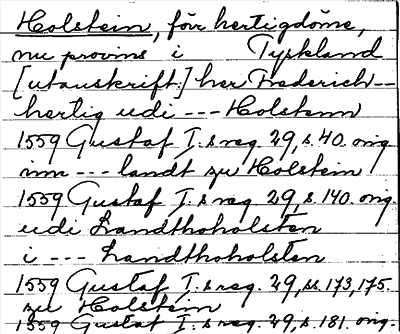 Holstein, förr hertigdöme,
nu provins i Tyskland
[utanskrift:] her Frederich --
hertig udi --- Holstenn
1559 Gustaf I.s reg. 29, s. 40. orig.
inn --- landt zu Holstein
1559 Gustaf I.s reg. 29, s. 140. orig.
udi Landthoholsten
i --- Landthoholsten
1559 Gustaf I.s reg. 29, ss. 173, 175.
zu Holstein
1559 Gustaf I.s reg. 29, s. 181. orig.